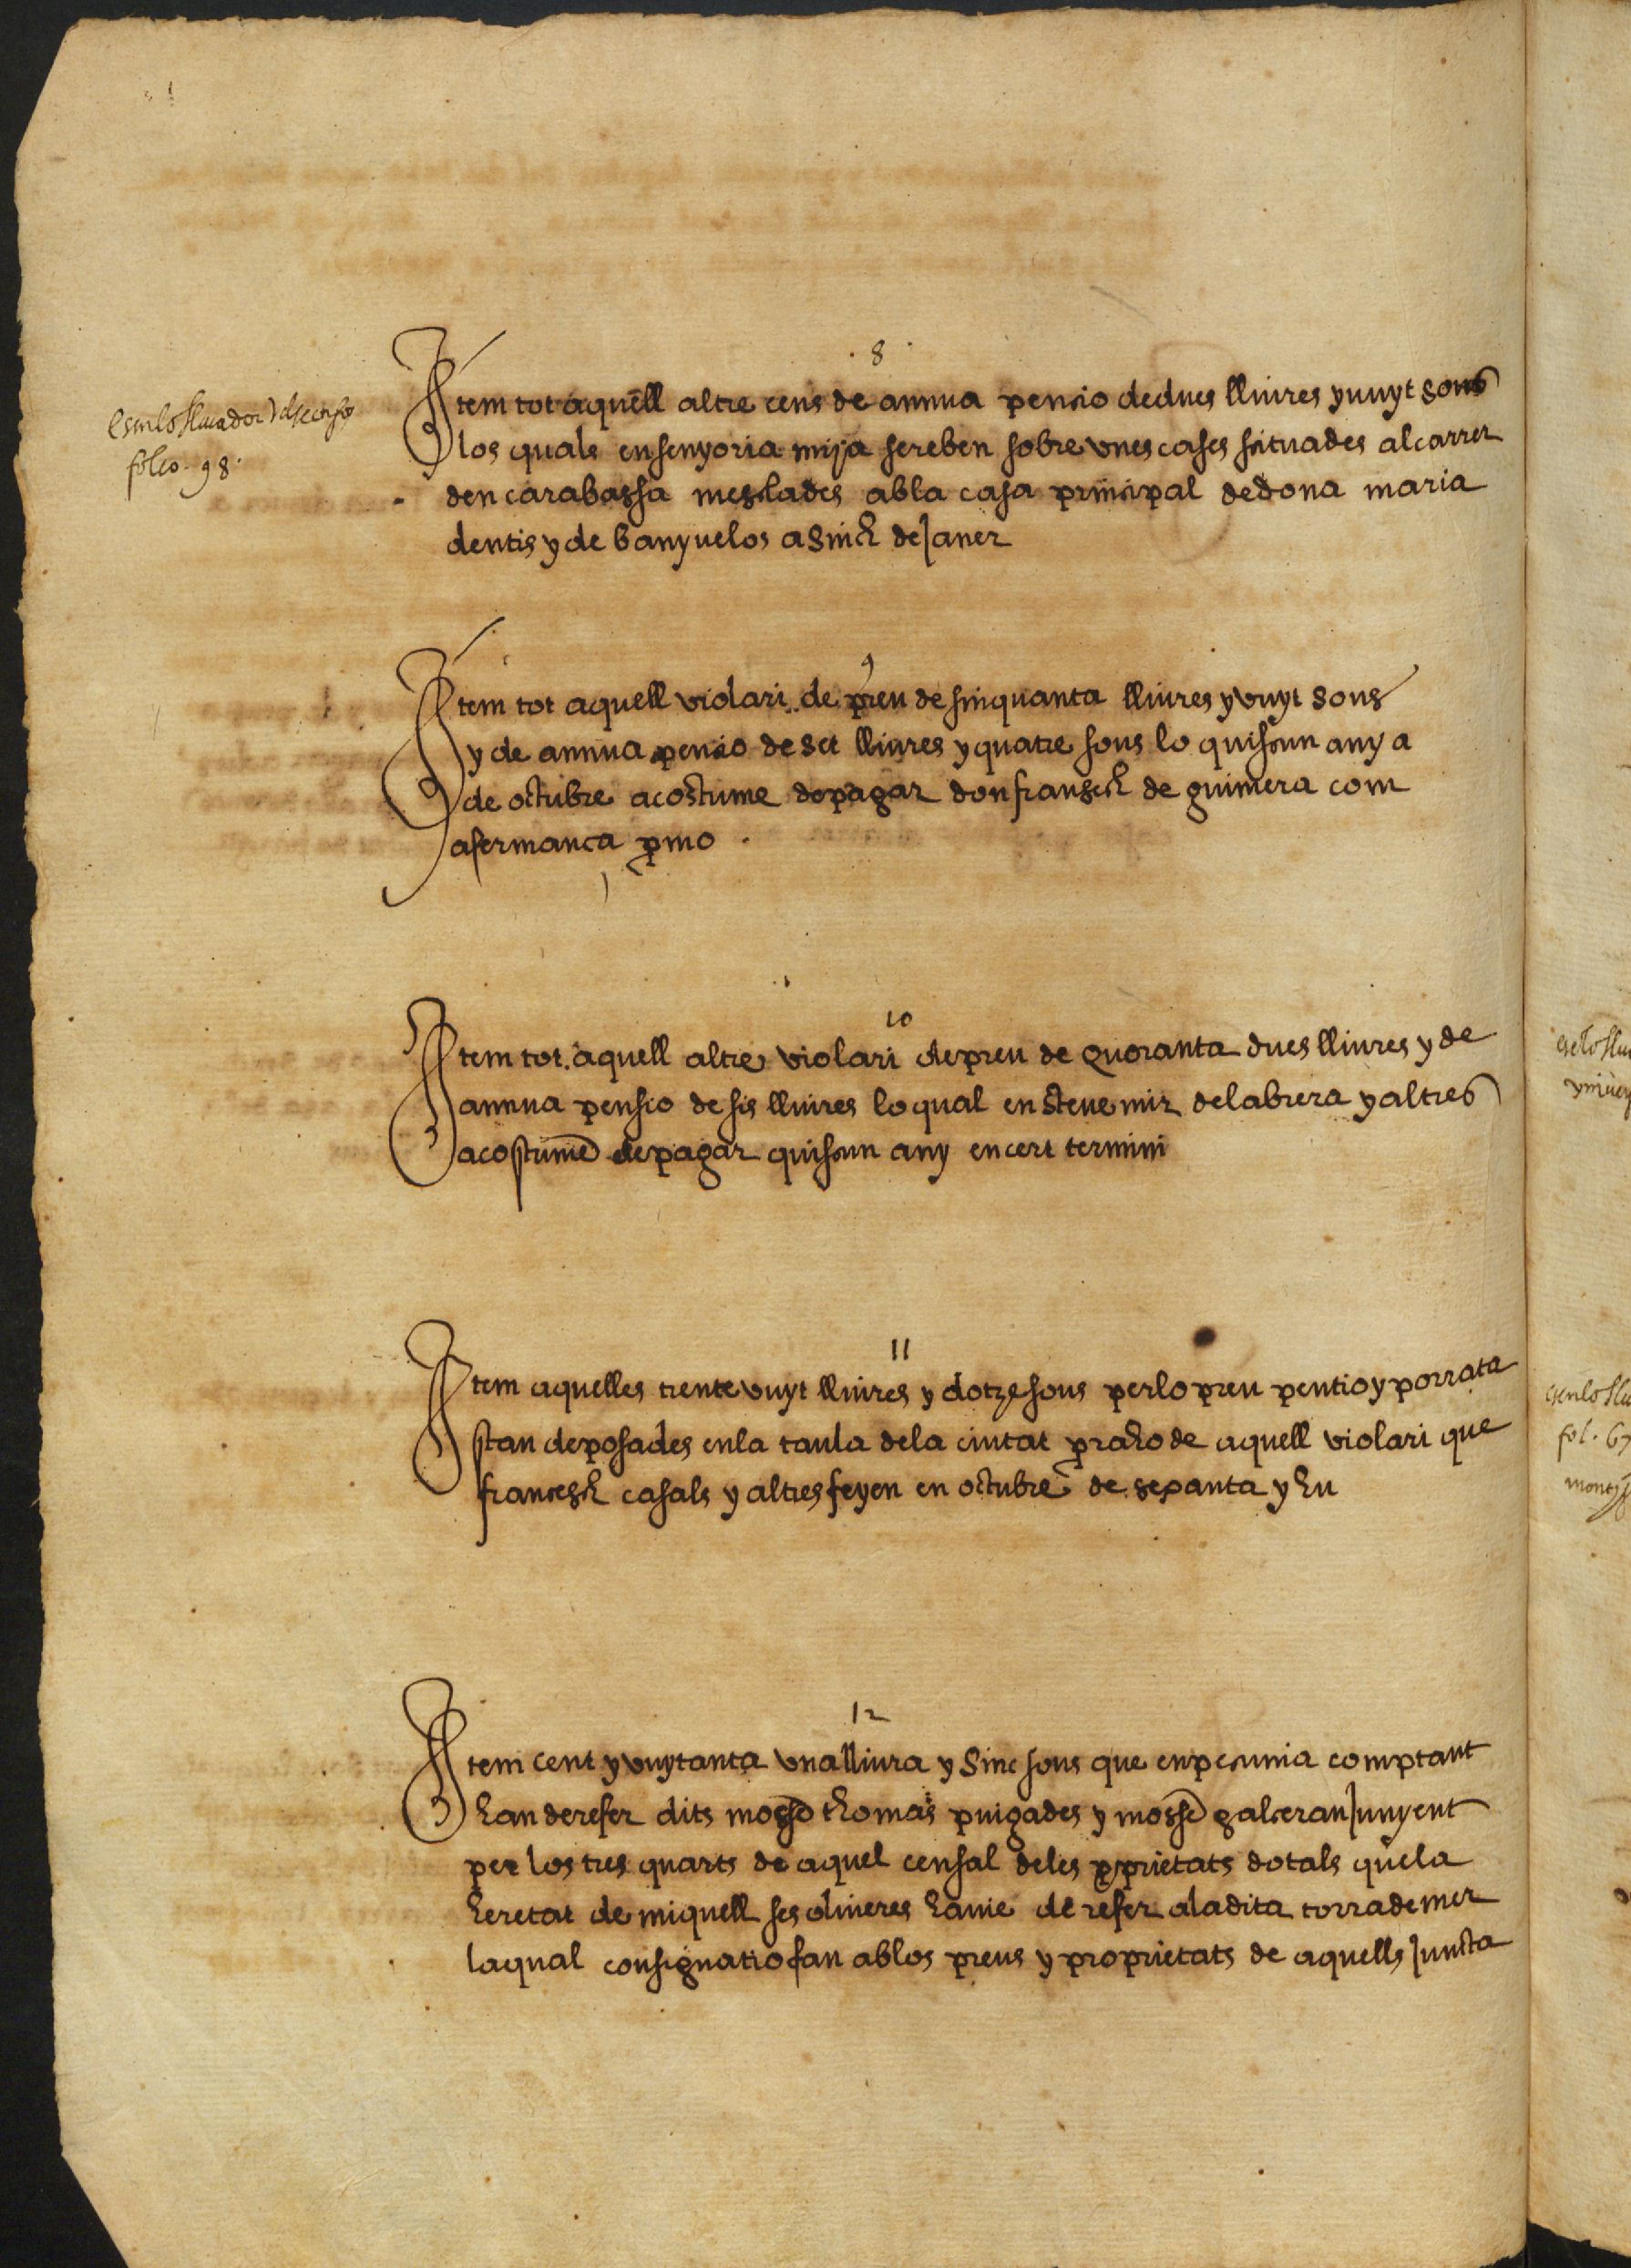 8
Item tot aquell altre cens de annua pensio de dues lliures y vuyt sous
los quals en senyoria mija se reben sobre unes cases situades al carrer
den carabassa mesclades ab la casa principal de dona maria
dentis y de banyuelos a sinch de Janer
esta en lo
foleo 98
9
Item tot aquell violari de preu de sinquanta lliures y vuyt sous
y de annua pensio de set lliures y quatre sous lo quiscun any a
de octubre acostume de pagar don fransech de guimera com
a fermanca pmo
10
Item tot aquell altre violari de preu de quoranta dues lliures y de
annua pensio de sis lliures lo qual en steve mir de labrera y altres
acostume de pagar quiscun any en cert termini
11
Item aquelles trente vuyt lliures y dotze sous per lo preu pentio y porrata
stan deposades en la taula de la ciutat p raho de aquell violari que
francesch casals y altres feyen en octubre de sexanta y hu
12
Item cent y vuytanta una lliura y sinc sous que en pecunia comptant
han de refer dits mosse thomas puigades y mosse galceran Junyent
per los tres quarts de aquel censal de les pprietats dotals que la
heretat de miquell ses oliveres havie de refer a la dita torrademer
la qual consignatio fan ab los preus y proprietats de aquells Juncta
fol. 67